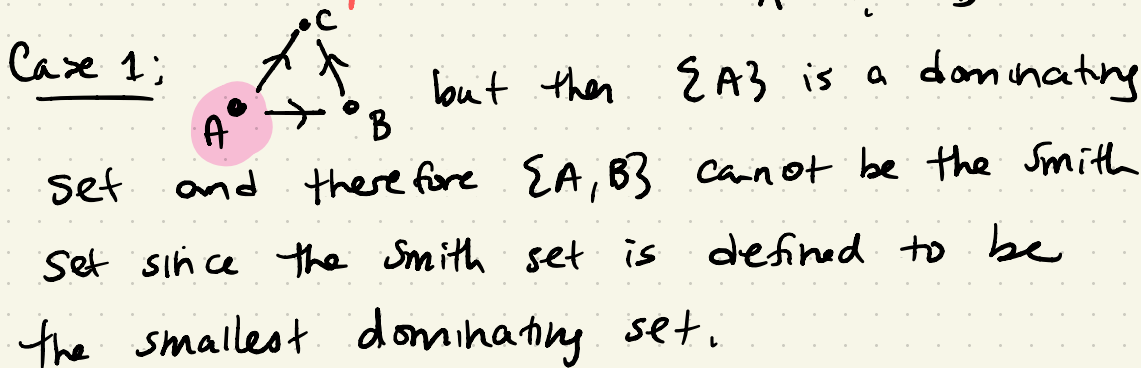 C
Case 1: but then {A} is a dominating
A B
set and therefore {A,B} cannot be the Smith
set since the Smith set is defined to be
the smallest dominating set.